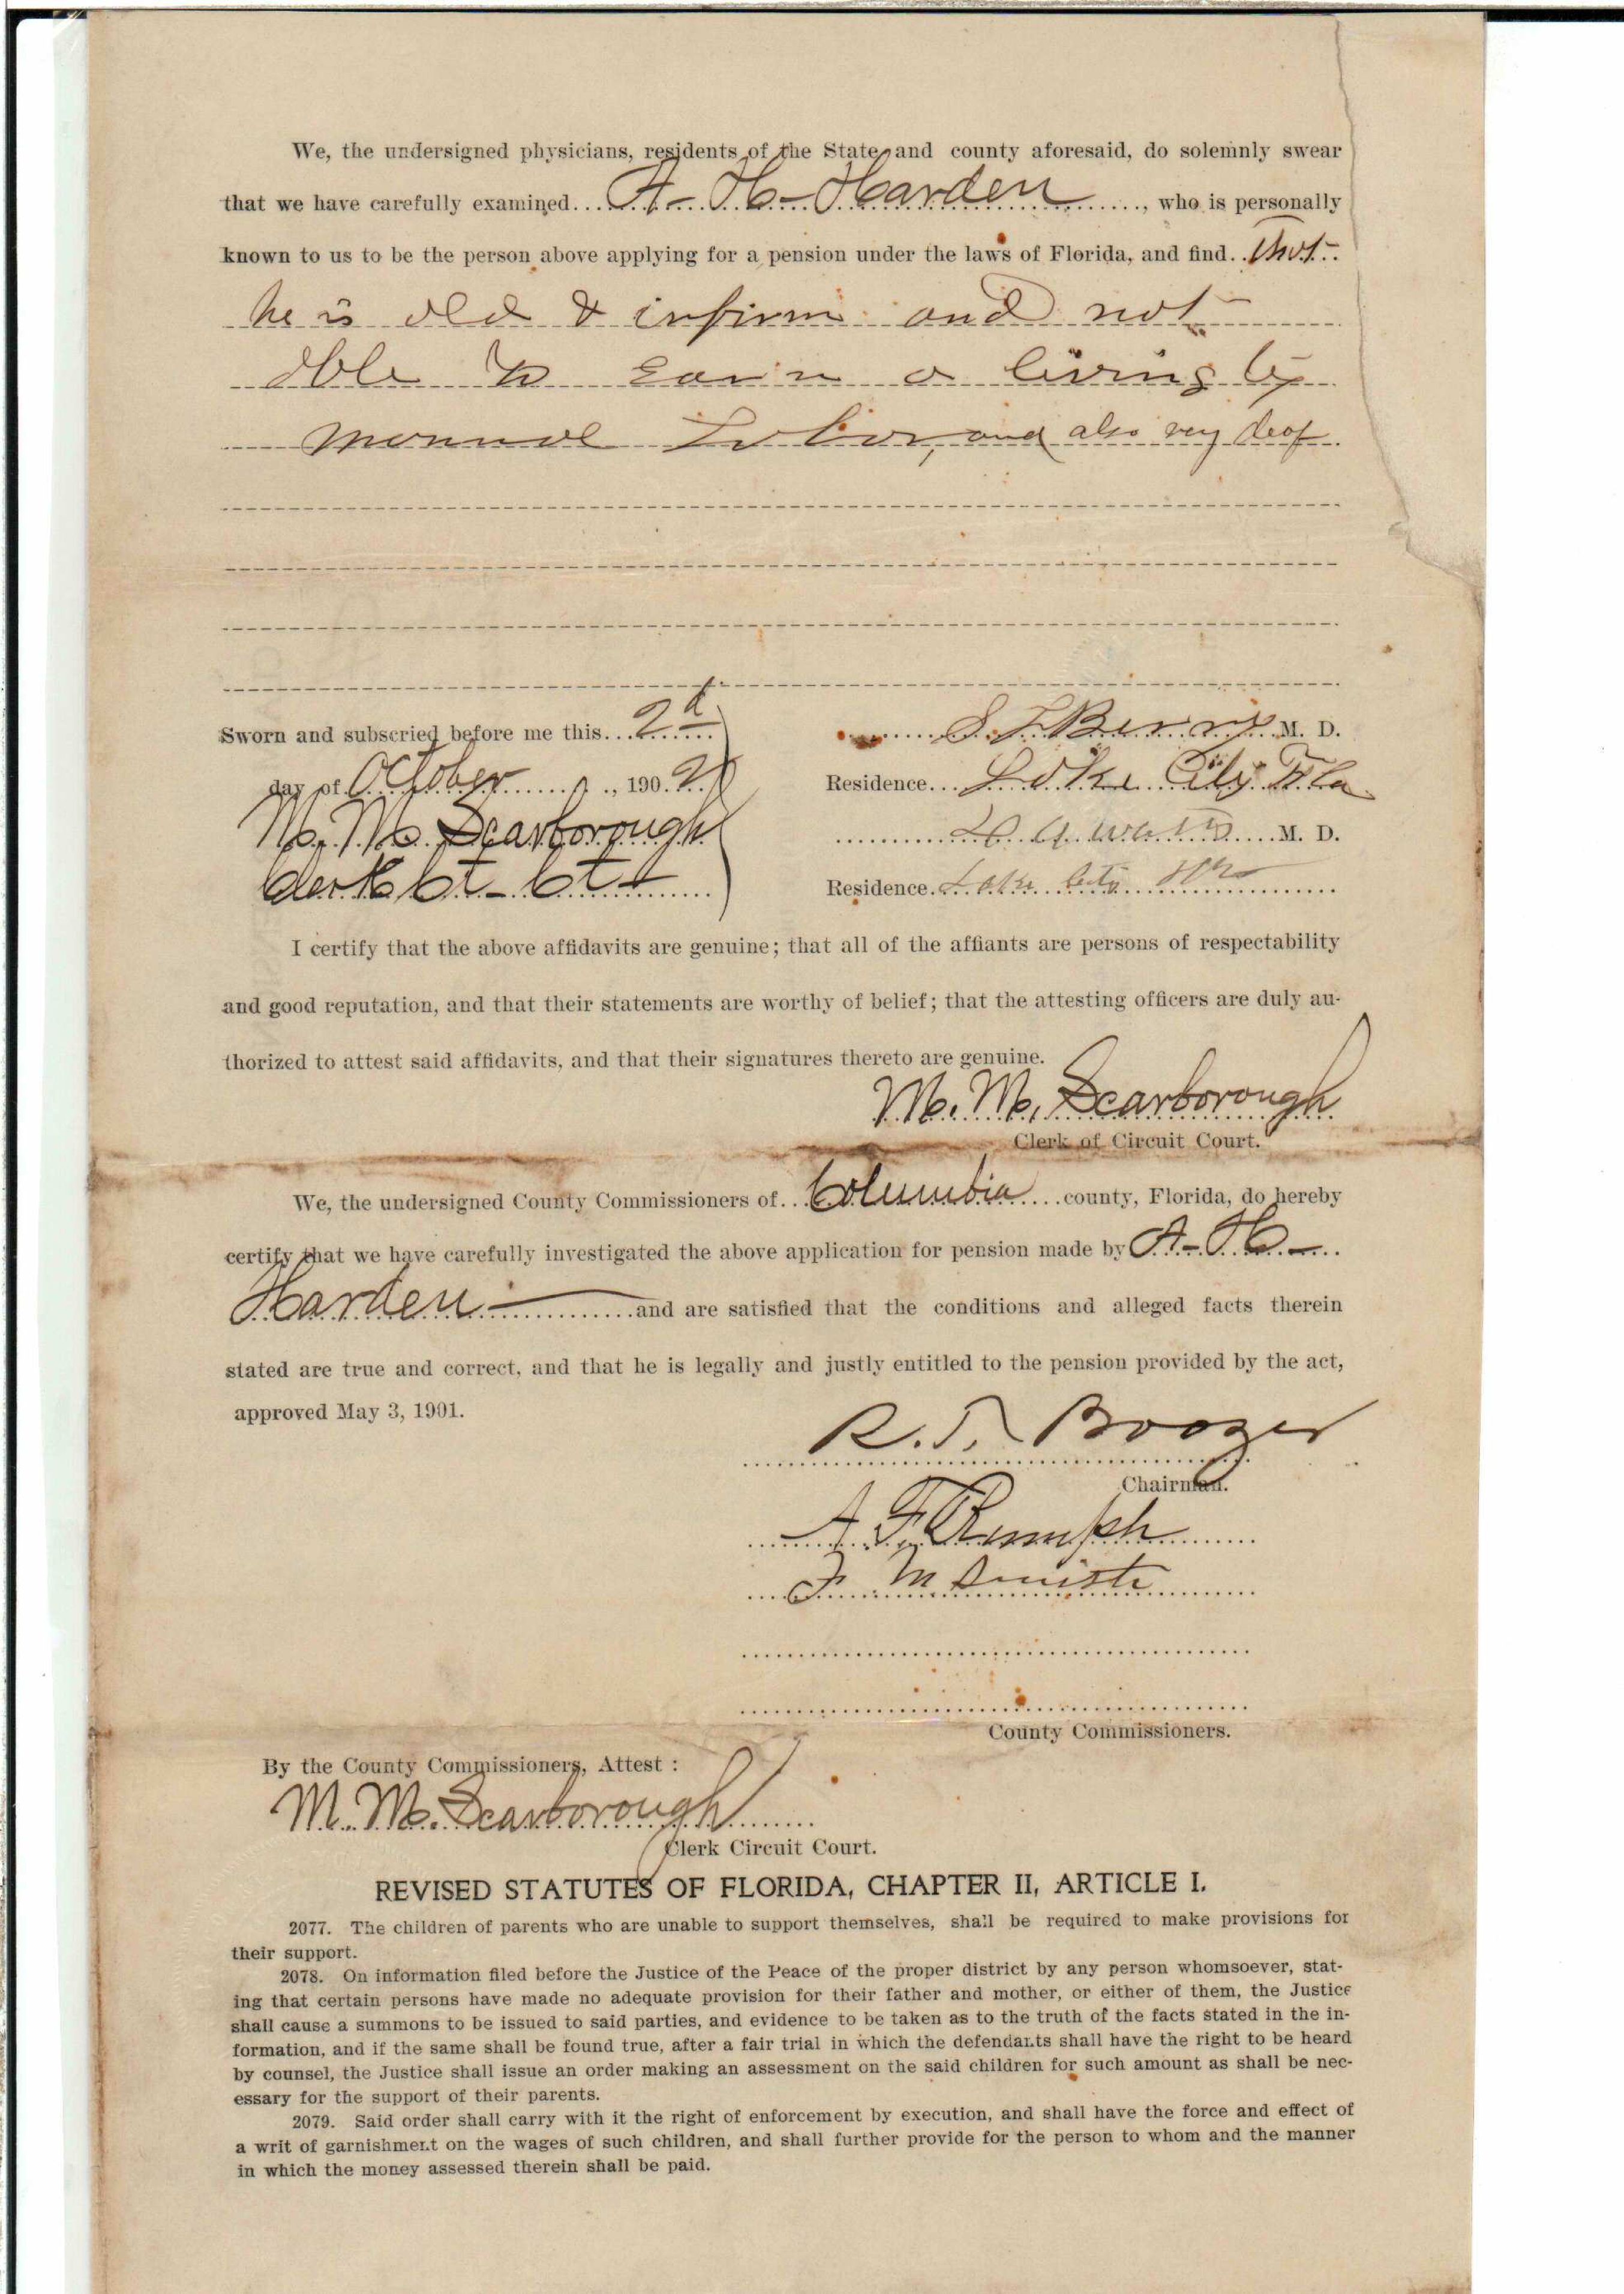 We, the undersigned physicians, residents of the State and county aforesaid, do solemnly swear
that we have carefully examined... A - H - Harden ......, who is personally
known to us to be the person above applying for a pension under the laws of Florida, and find.. that
he is old & infirm and not
able to earn a living by
manual Labor, and also very deaf
Sworn and subscried before me this... 2d
S. L. Berry M. D.
day of October ......, 1902
Residence... Lake City Fla
M. M. Scarborough
M. D.
Clerk Ct - Ct
Residence. Lake City Fla
I certify that the above affidavits are genuine; that all of the affiants are persons of respectability
and good reputation, and that their statements are worthy of belief; that the attesting officers are duly au-
thorized to attest said affidavits, and that their signatures thereto are genuine.
M. M. Scarborough
Clerk of Circuit Court.
We, the undersigned County Commissioners of... Columbia ....county, Florida, do hereby
certify that we have carefully investigated the above application for pension made by A - H -
Harden ............and are satisfied that the conditions and alleged facts therein
stated are true and correct, and that he is legally and justly entitled to the pension provided by the act,
approved May 3, 1901.
R. T. Boozer
Chairman.
A. F. Rumph
F. M
County Commissioners.
By the County Commissioners, Attest :
M. M. Scarborough
Clerk Circuit Court.
REVISED STATUTES OF FLORIDA, CHAPTER II, ARTICLE I.
2077. The children of parents who are unable to support themselves, shall be required to make provisions for
their support.
2078. On information filed before the Justice of the Peace of the proper district by any person whomsoever, stat-
ing that certain persons have made no adequate provision for their father and mother, or either of them, the Justice
shall cause a summons to be issued to said parties, and evidence to be taken as to the truth of the facts stated in the in-
formation, and if the same shall be found true, after a fair trial in which the defendants shall have the right to be heard
by counsel, the Justice shall issue an order making an assessment on the said children for such amount as shall be nec-
essary for the support of their parents.
2079. Said order shall carry with it the right of enforcement by execution, and shall have the force and effect of
a writ of garnishment on the wages of such children, and shall further provide for the person to whom and the manner
in which the money assessed therein shall be paid.